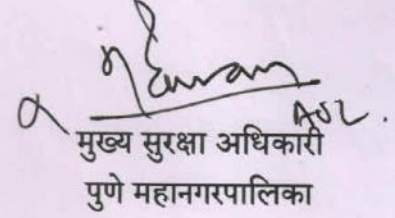 मुख्य सुरक्षा अधिकारी
पुणे महानगरपालिका